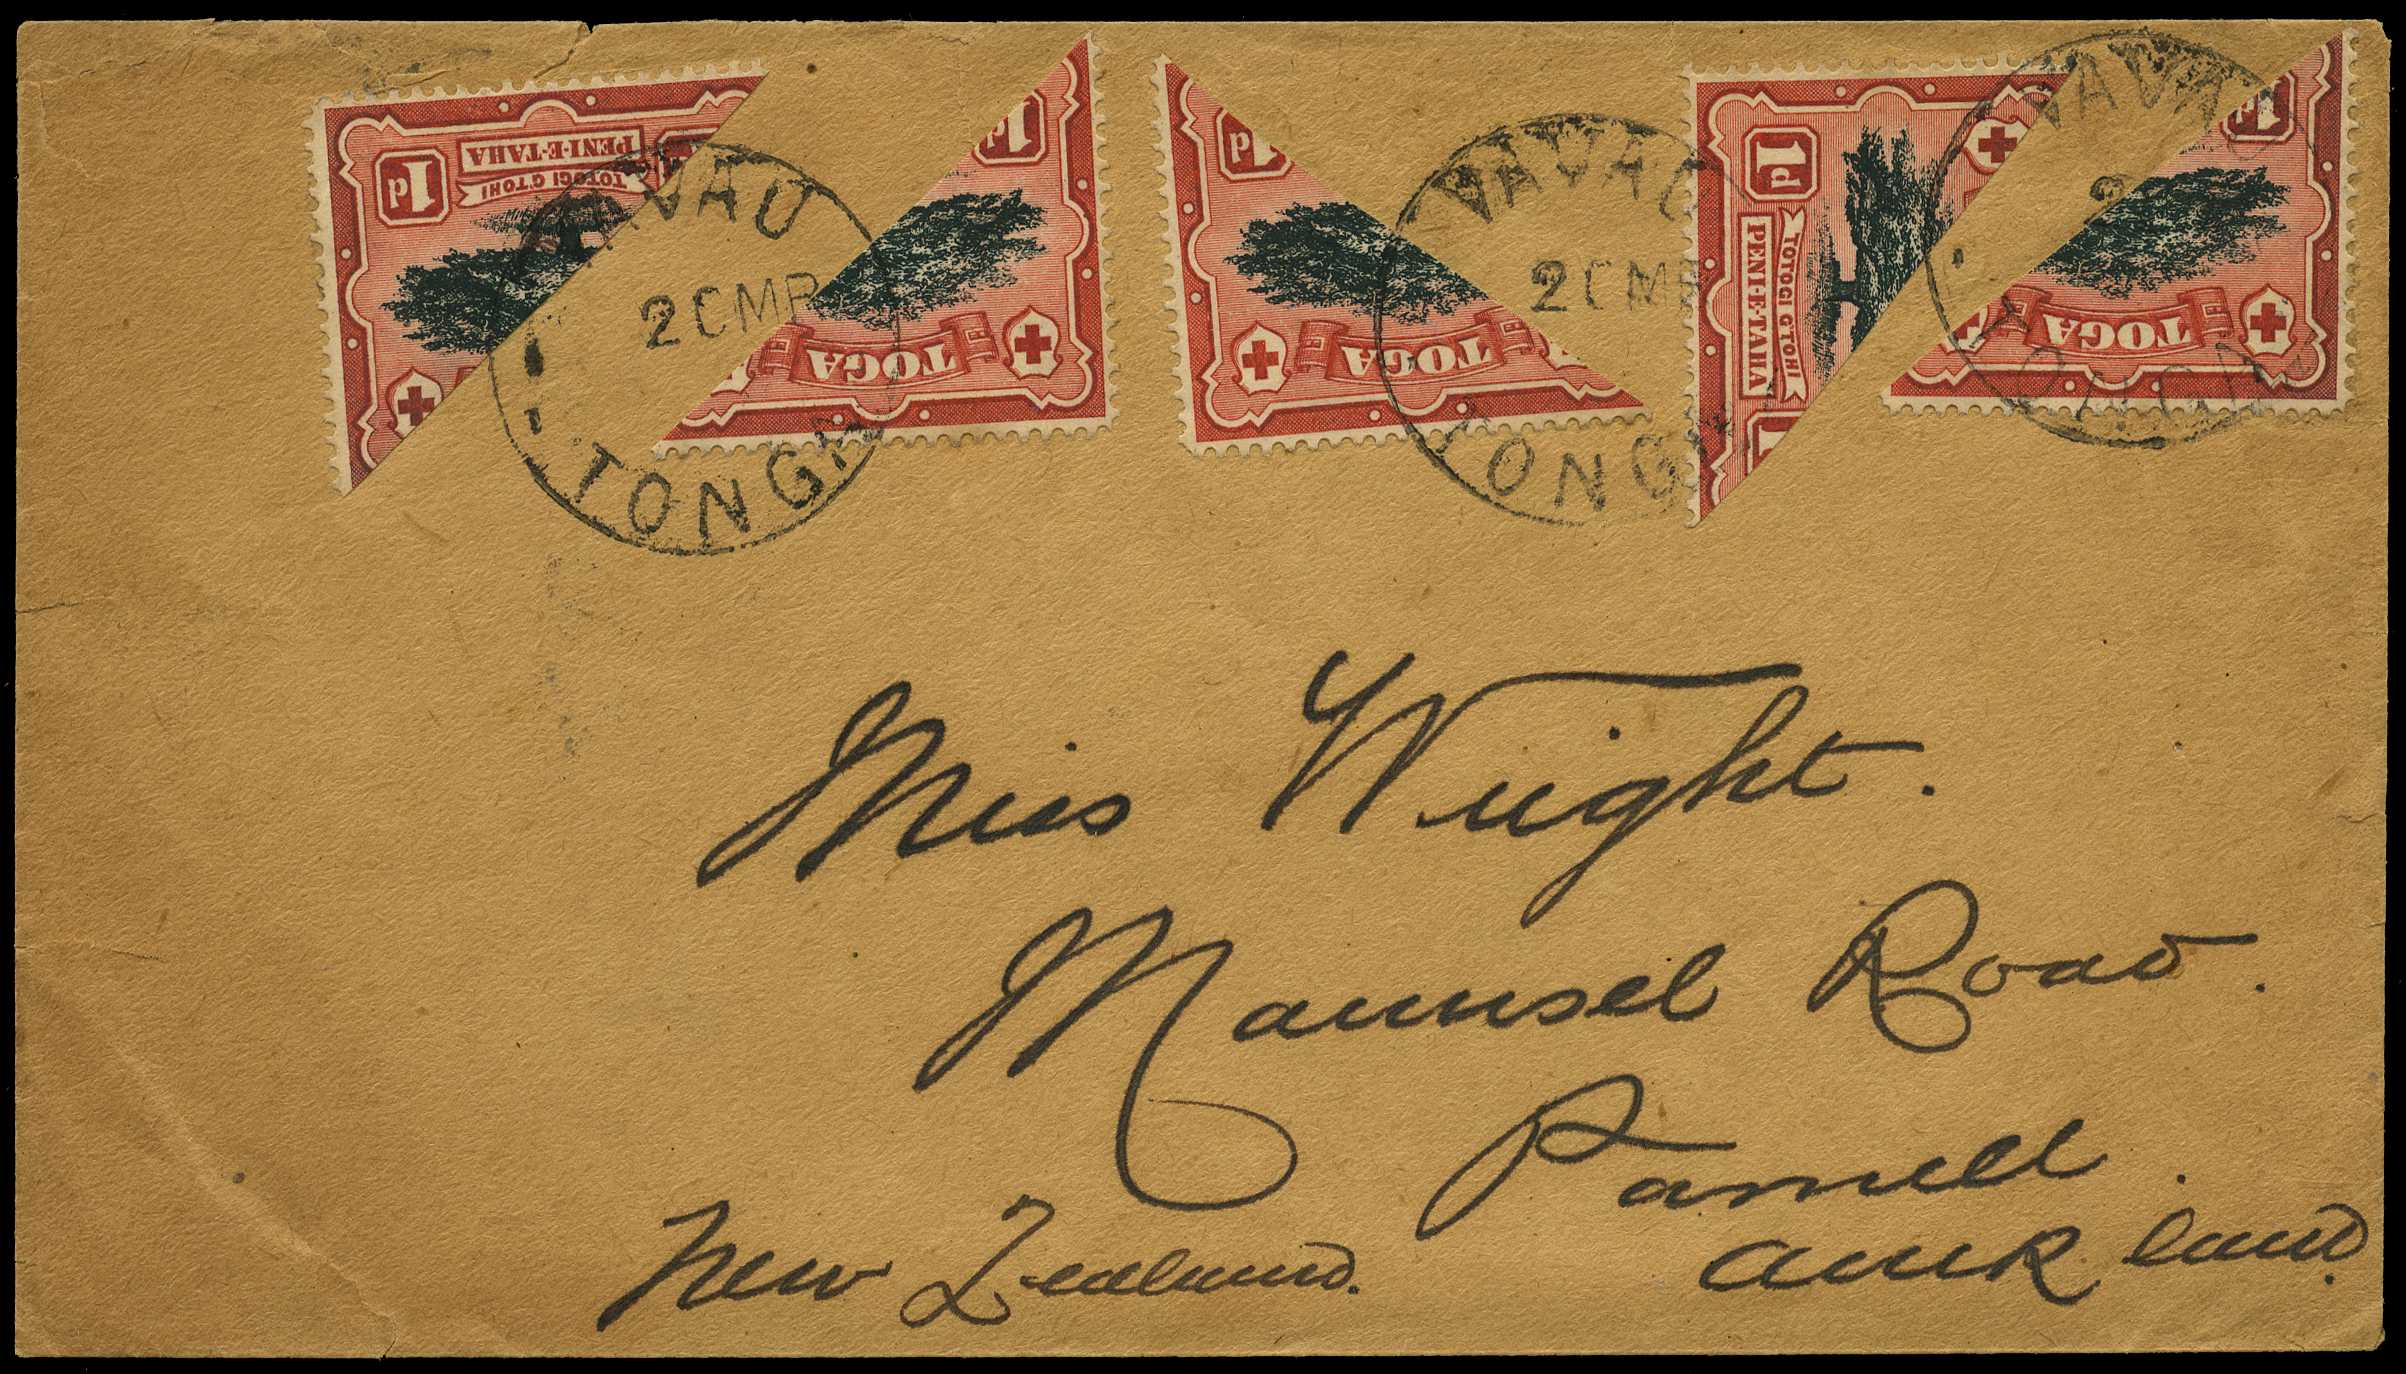 1d PENI·E·TAHA TOTOGI G'TOHI
1d TOGA
1d TOGA
1d TOTOGI G'TOHI PENI·E·TAHA
1d TOGA
VAVAU
TONGA
VAVAU
TONGA
VAVAU
TONGA
Miss Wright.
Maunsel Road.
Parnell.
Auckland.
New Zealand.